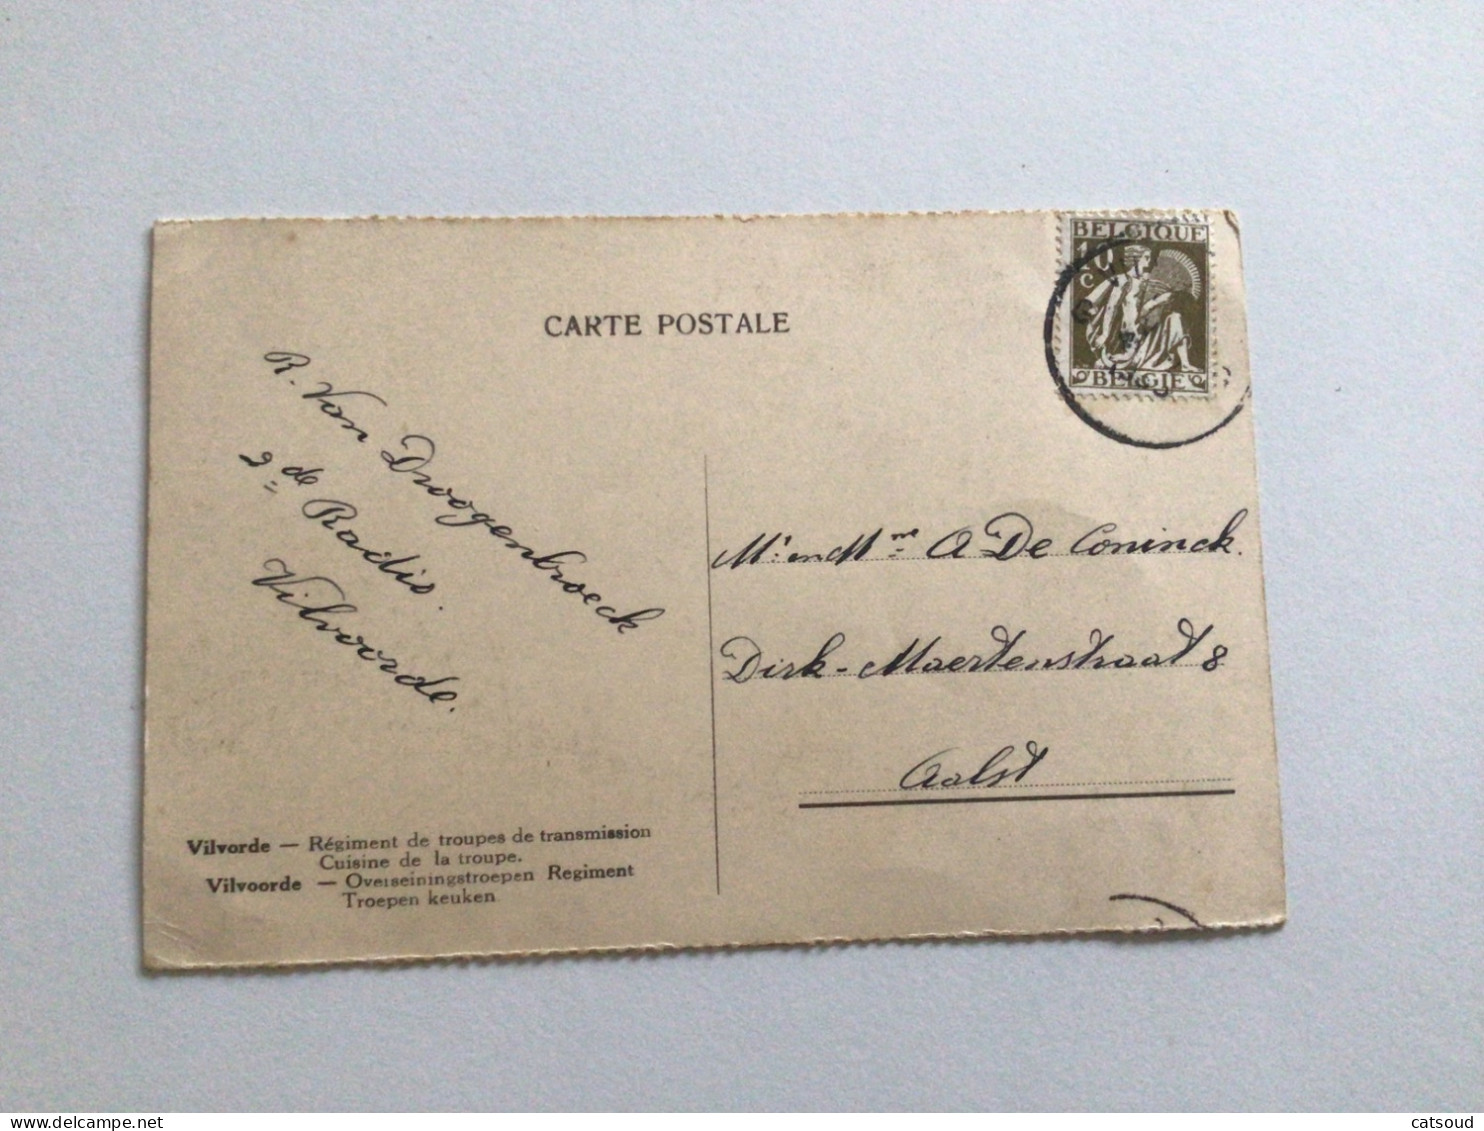 BELGIQUE
10
C
BELGIE
CARTE POSTALE
R. Van Droogenbroeck
2de Radio.
Vilvoorde.
Mr en Mme A De Coninck.
Dirk-Maertenstraat 8
Aalst
Vilvorde — Régiment de troupes de transmission
Cuisine de la troupe.
Vilvoorde — Overseiningstroepen Regiment
Troepen keuken
catsoud